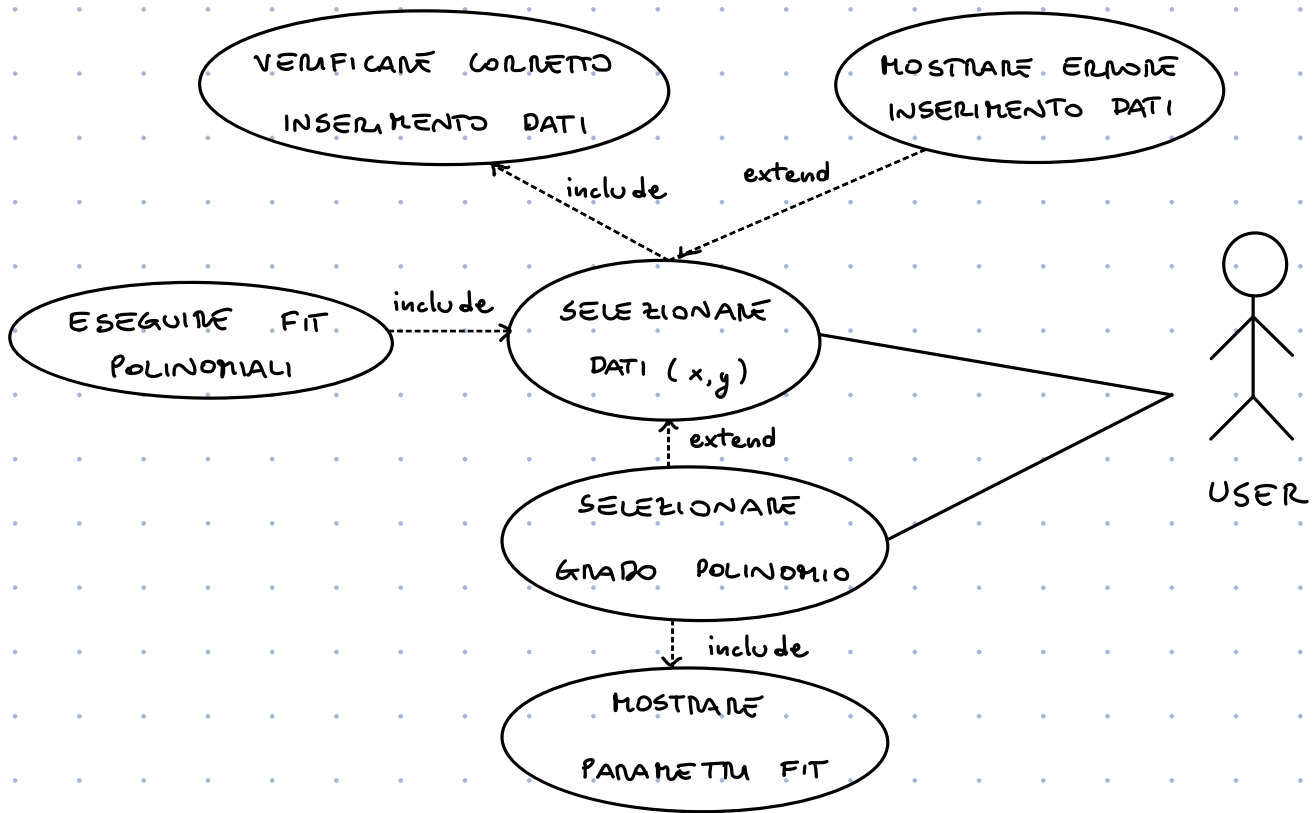 VERIFICARE CORRETTO
INSERIMENTO DATI
MOSTRARE ERRORE
INSERIMENTO DATI
include
extend
ESEGUIRE FIT
POLINOMIALI
include
SELEZIONARE
DATI (x,y)
extend
SELEZIONARE
GRADO POLINOMIO
USER
include
MOSTRARE
PARAMETRI FIT